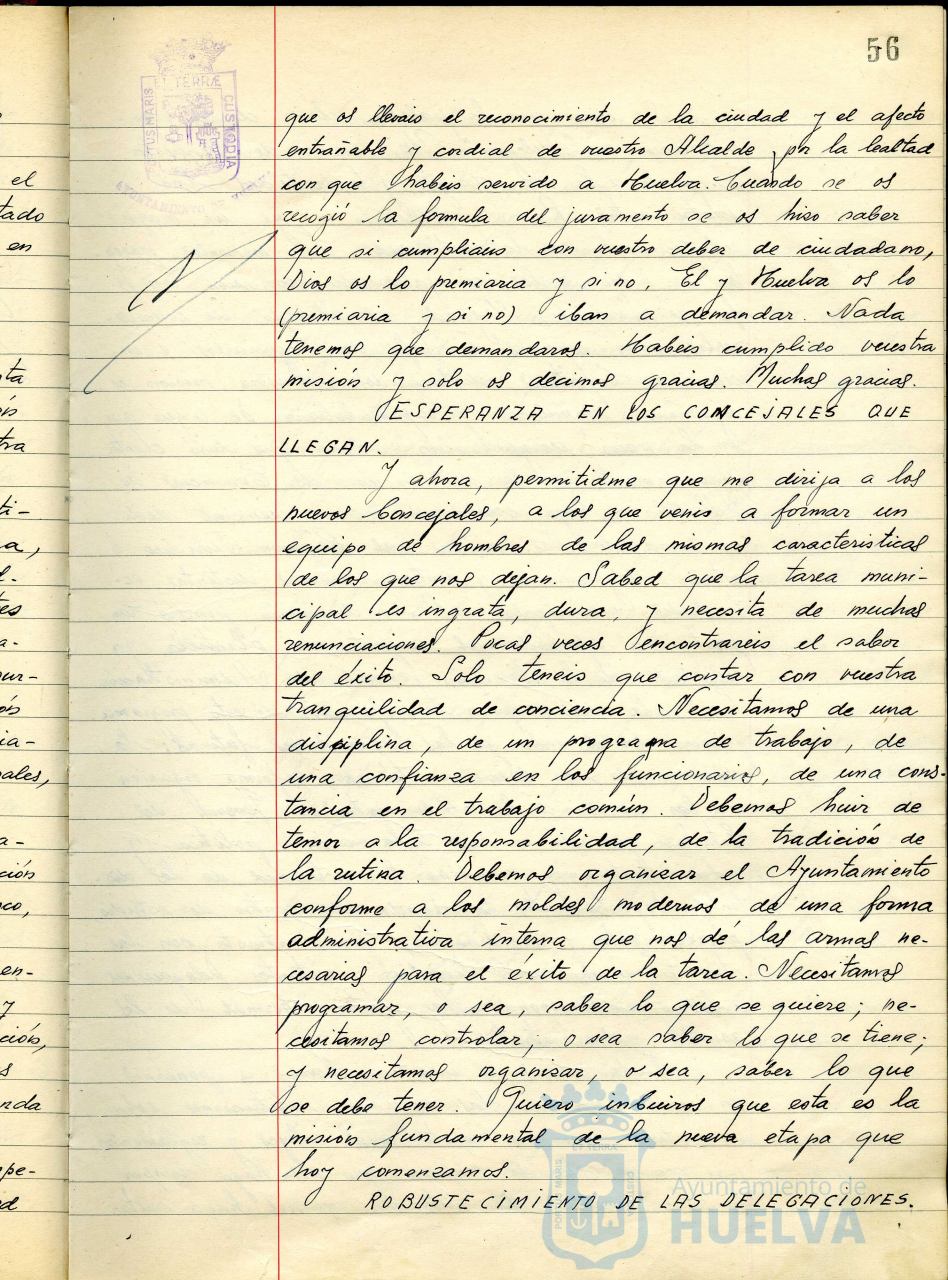 56
que os llevais el reconocimiento de la ciudad y el afecto
entrañable y cordial de vuestro Alcalde, por la lealtad
con que habeis servido a Huelva. Cuando se os
recogió la formula del juramento se os hiso saber
que si cumpliais con vuestro deber de ciudadano,
Dios os lo premiaria y si no, El y Huelva os lo
(premiaria y si no) iban a demandar. Nada
tenemos que demandaros. Habeis cumplido vuestra
misión y solo os decimos gracias. Muchas gracias.
ESPERANZA EN LOS CONCEJALES QUE
LLEGAN.
Y ahora, permitidme que me dirija a los
nuevos Concejales, a los que venis a formar un
equipo de hombres de las mismas caracteristicas
de los que nos dejan. Sabed que la tarea muni-
cipal es ingrata, dura, y necesita de muchas
renunciaciones. Pocas veces encontrareis el sabor
del éxito. Solo teneis que contar con vuestra
tranquilidad de conciencia. Necesitamos de una
disciplina, de un programa de trabajo, de
una confianza en los funcionarios, de una cons-
tancia en el trabajo común. Debemos huir de
temor a la responsabilidad, de la tradición de
la rutina. Debemos organisar el Ayuntamiento
conforme a los moldes modernos, de una forma
administrativa interna que nos dé las armas ne-
cesarias para el éxito de la tarea. Necesitamos
programar, o sea, saber lo que se quiere; ne-
cesitamos controlar, o sea saber lo que se tiene;
y necesitamos organisar, o sea, saber lo que
se debe tener. Quiero inbuiros que esta es la
misión fundamental de la nueva etapa que
hoy comenzamos.
ROBUSTECIMIENTO DE LAS DELEGACIONES.
Ayuntamiento de
HUELVA